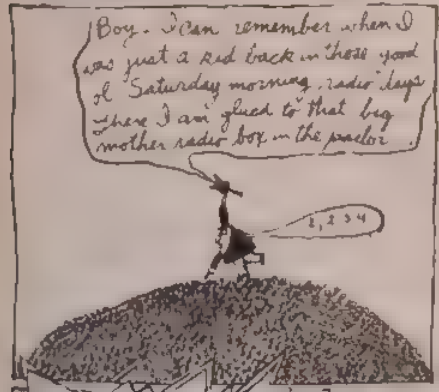 Boy. I can remember when I
was just a kid back in those good
ol Saturday morning radio days
where I am glued to that big
mother radio box in the parlor
1, 2 3 4